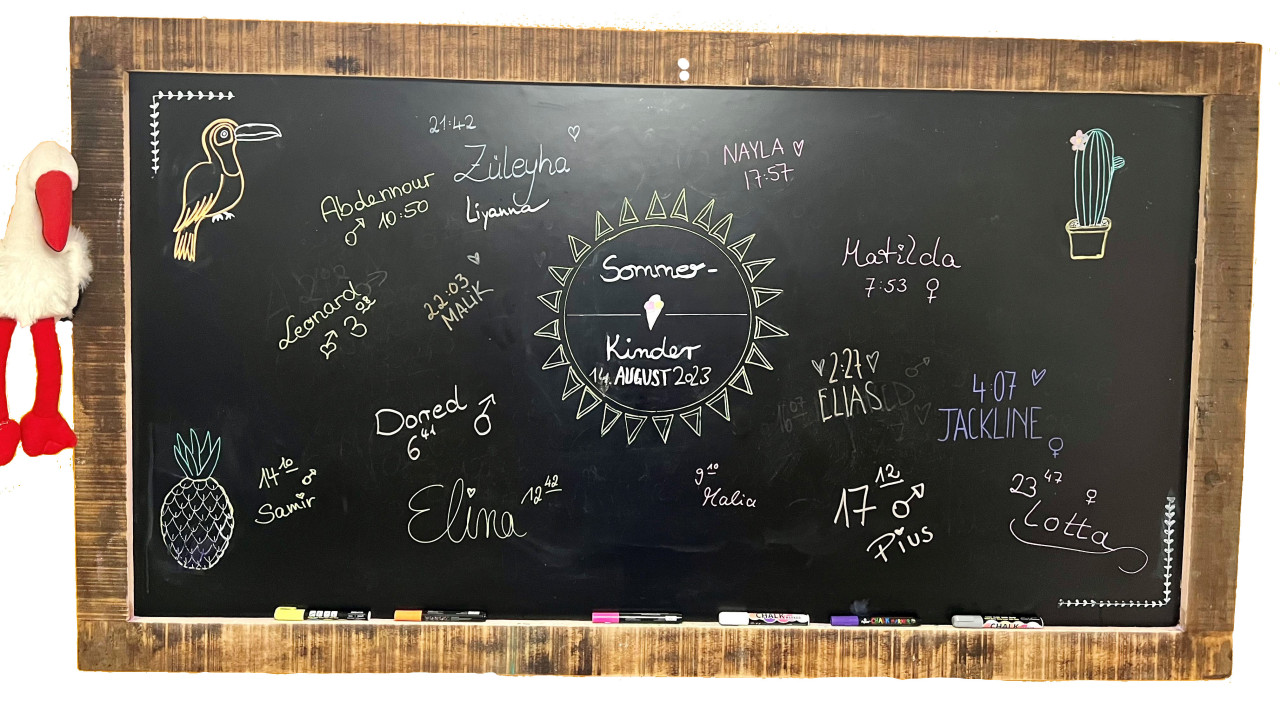 21:42
Züleyha ♡
Liyanna
Abdennour
♂ 10:50
NAYLA ♡
17:57
Sommer-
Kinder
14. AUGUST 2023
Matilda
7:53 ♀
Leonard
♂ 3 03
22:03
MALIK
♡ 2:27 ♡
ELIAS
4:07 ♡
JACKLINE
♀
Dorred ♂
6 41
14 10 ♂
Samir
Elina 12 42
9 10
Malia
17 12 ♂
Pius
23 47 ♀
Lotta
CHALK
CHALK MARKER
CHALK